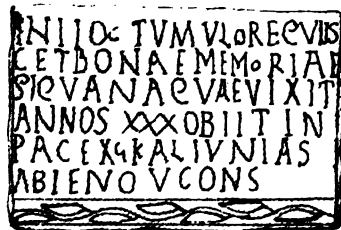 IN HOC TVMVLO REQVIIS
CET BONAE MEMORIAE
SIQVANA QVAE VIXIT
ANNOS XXX OBIIT IN
PACE XϛKAL IVNIAS
ABIENO V CONS